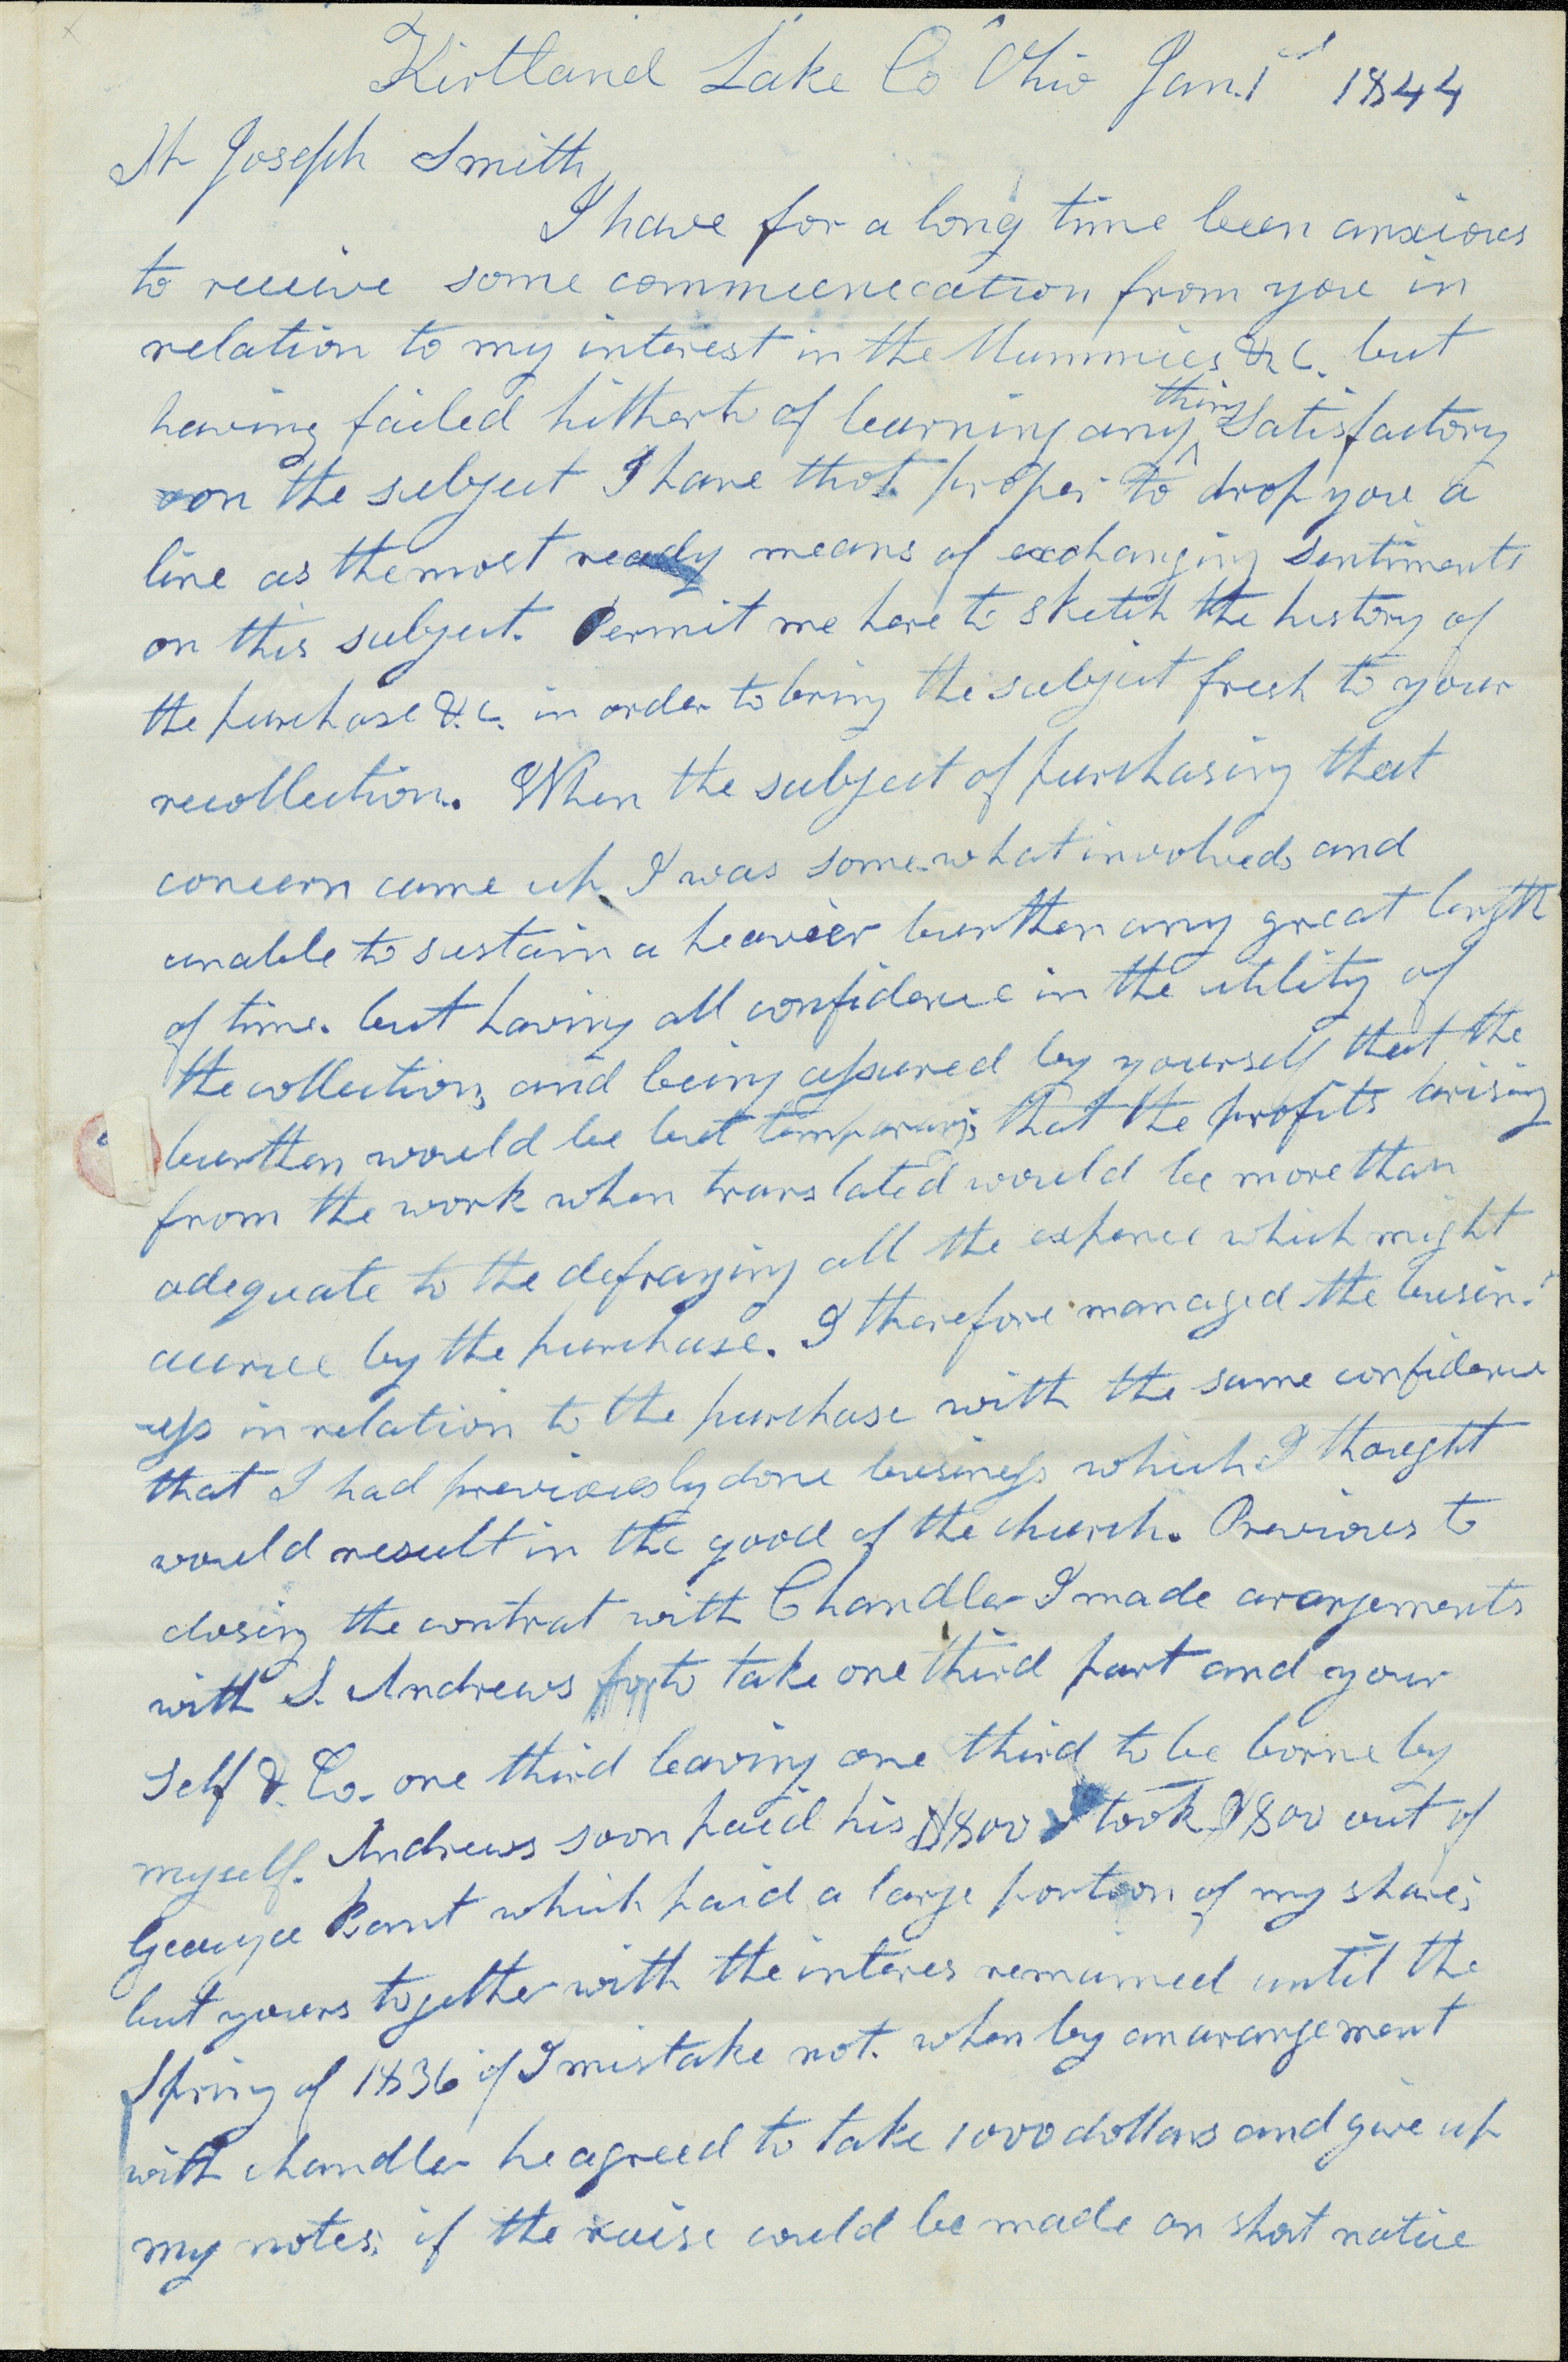 Kirtland Lake Co Ohio Jan. 1st 1844
Mr Joseph Smith
I have for a long time been anxious
to receive some communecation from you in
relation to my interest in the Mummies &.c. but
having failed hitherto of learning any thing Satisfactory
on the subject I have thot. proper to drop you a
line as the most ready means of exchanging sentiments
on this subject. Permit me here to sketch the history of
the purchase &.c. in order to bring the subject fresh to your
recollection. When the subject of purchasing that
concern came up I was some-what involved, and
unable to sustain a heavier burthen any great length
of time. but having all confidence in the utility of
the collection, and being assured by yourself that the
burthen would be but temporary; that the profits arising
from the work when translated would be more than
adequate to the defraying all the expence which might
accrue by the purchase. I therefore managed the busin-
-ess in relation to the purchase with the same confidence
that I had previously done business which I thought
would result in the good of the church. Previous to
closing the contrat with Chandler I made arangements
with S. Andrews to take one third part and your
self &. Co. one third leaving one third to be borne by
myself. Andrews soon paid his $800 I took $800 out of
Geauga Bank which paid a large portion of my share;
but yours together with the interes remained until the
Spring of 1836 if I mistake not. when by an arangement
with chandler he agreed to take 1000 dollars and give up
my notes; if the raise could be made on short notice